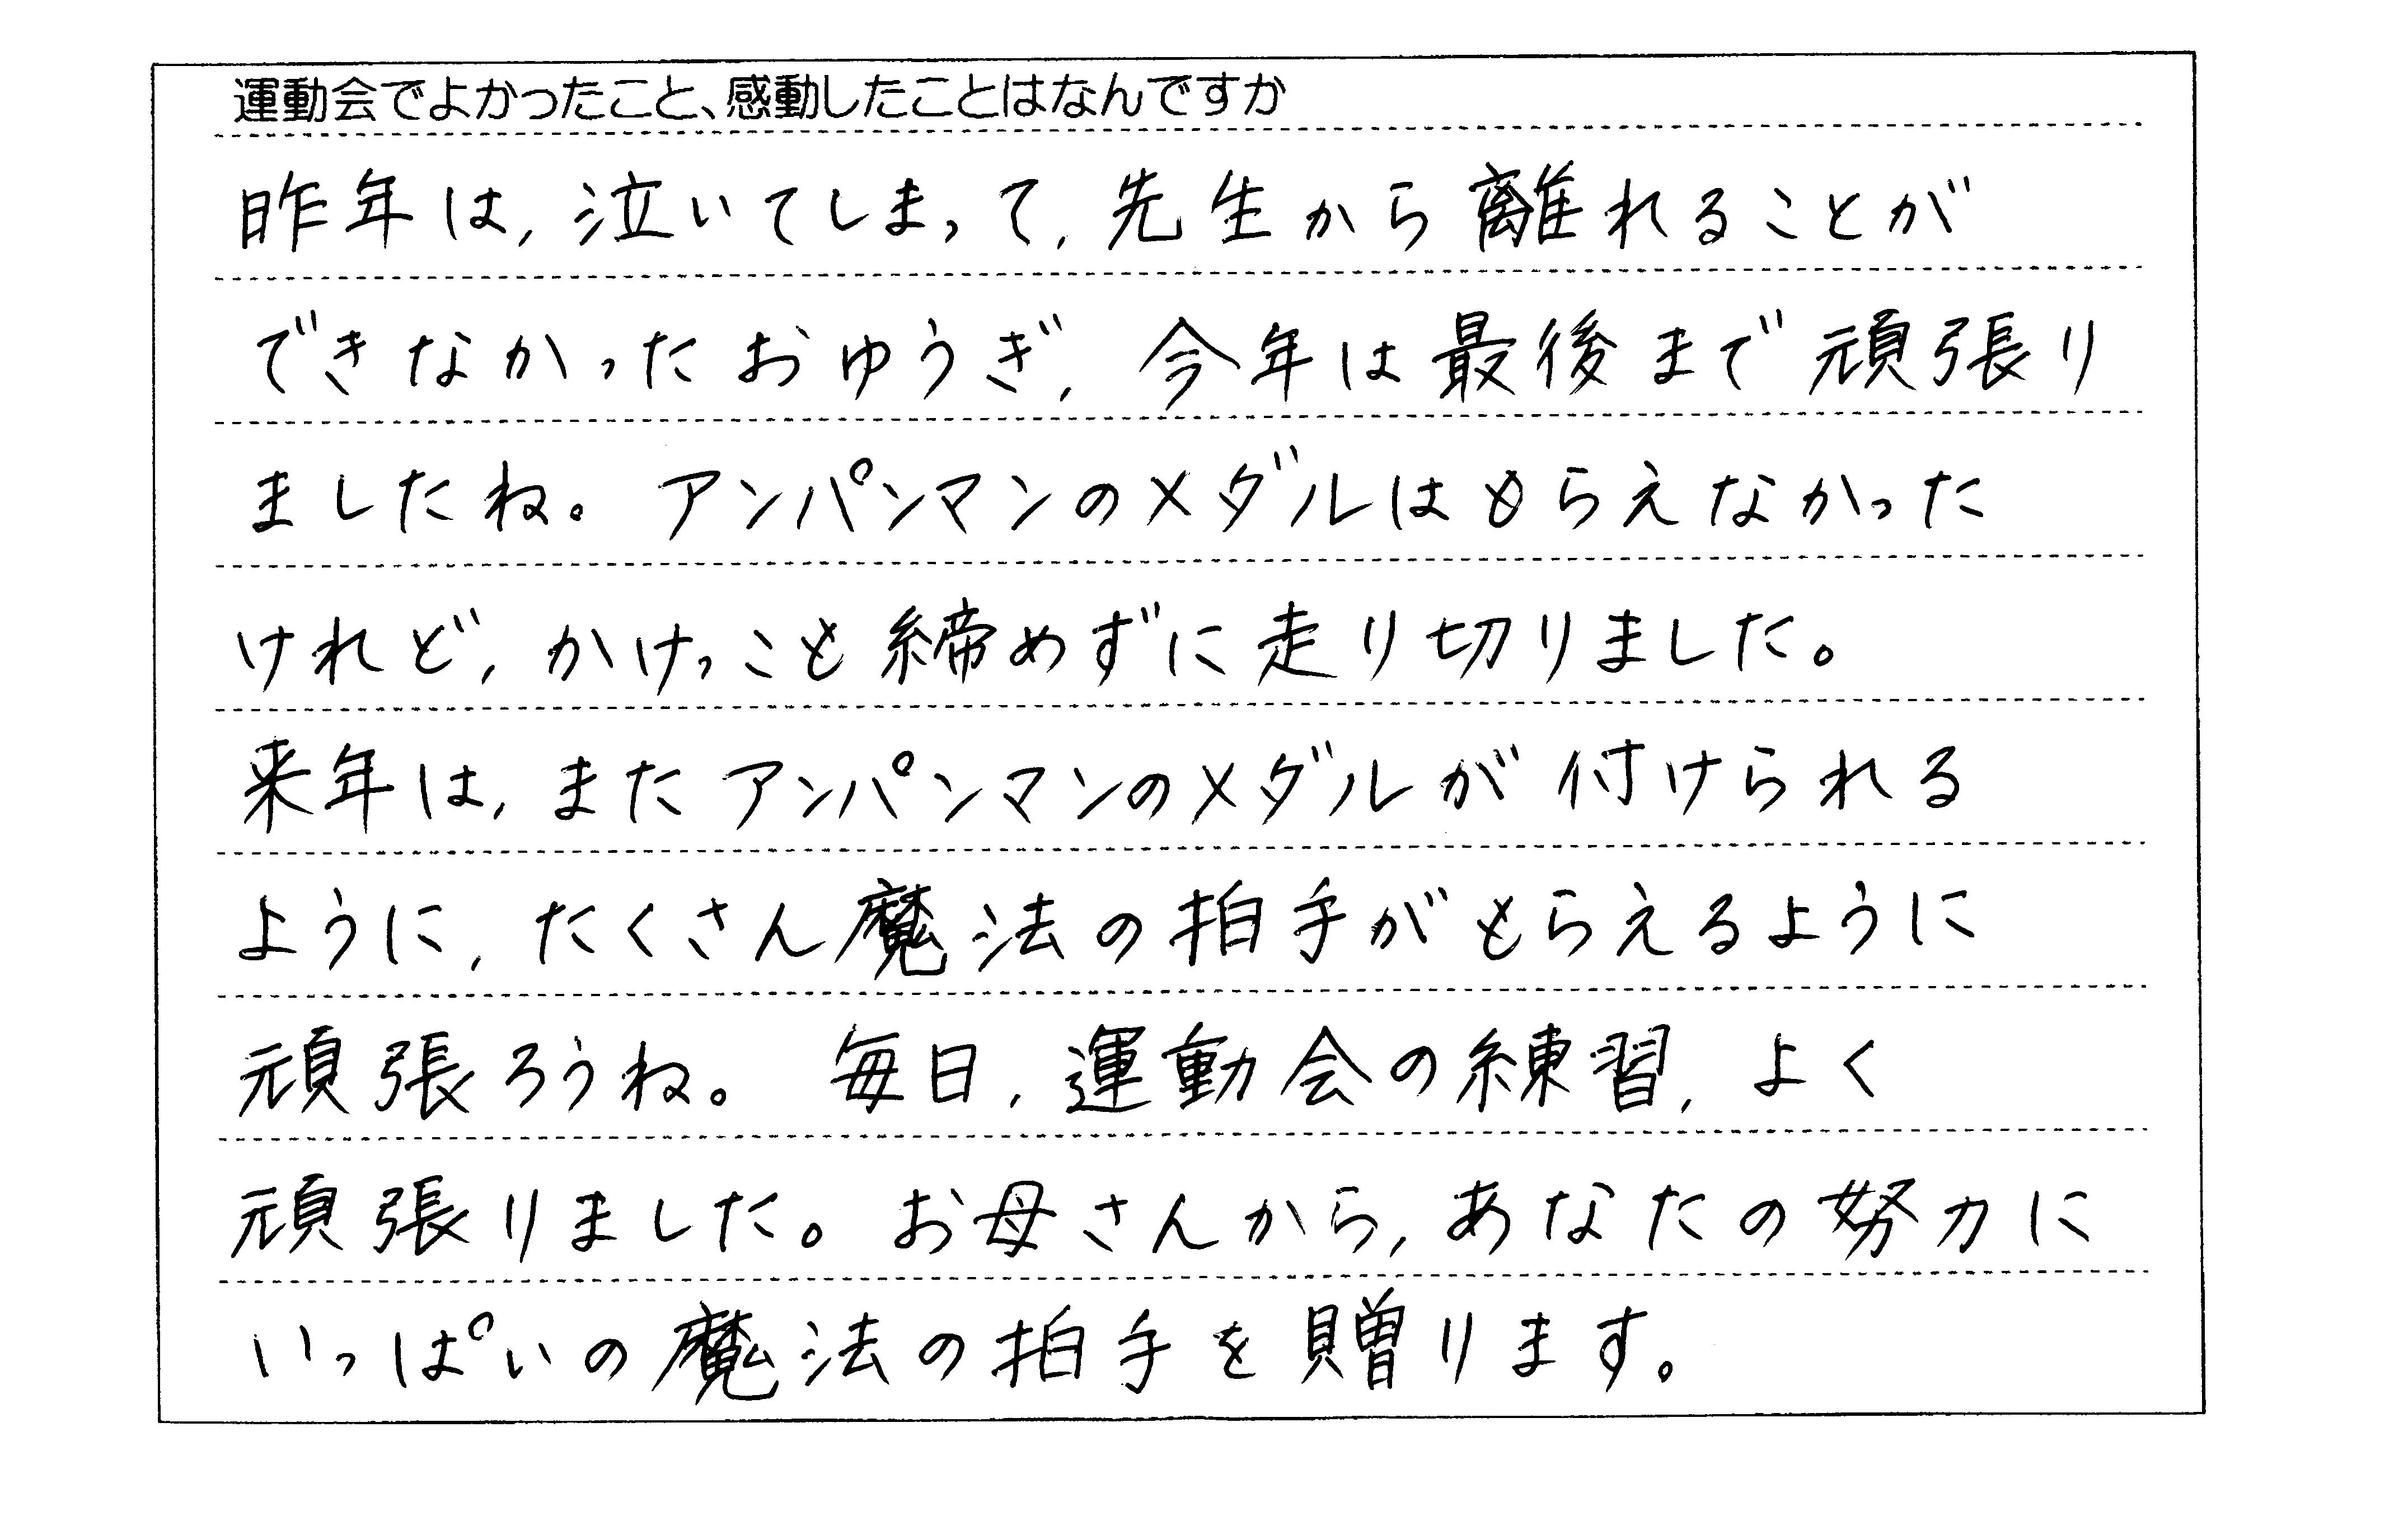 運動会でよかったこと、感動したことはなんですか
昨年は,泣いてしまって,先生から離れることが
できなかったおゆうぎ,今年は最後まで頑張り
ましたね。アンパンマンのメダルはもらえなかった
けれど,かけっこも締めずに走り切りました。
来年は,またアンパンマンのメダルが付けられる
ように,たくさん魔法の拍手がもらえるように
頑張ろうね。 毎日,運動会の練習,よく
頑張りました。お母さんから,あなたの努力に
いっぱいの魔法の拍手を贈ります。